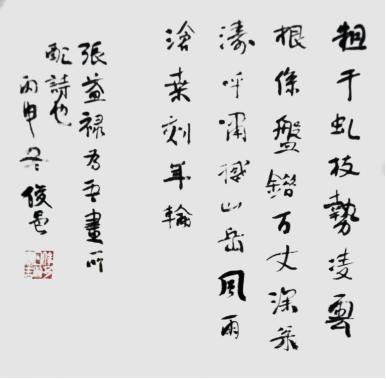 粗干虬枝勢凌雲
根係盤錯百丈深枀
濤呼嘯撼山岳風雨
滄桑刻年輪
張益祿為吾畫所
配詩也
丙申冬俊邑